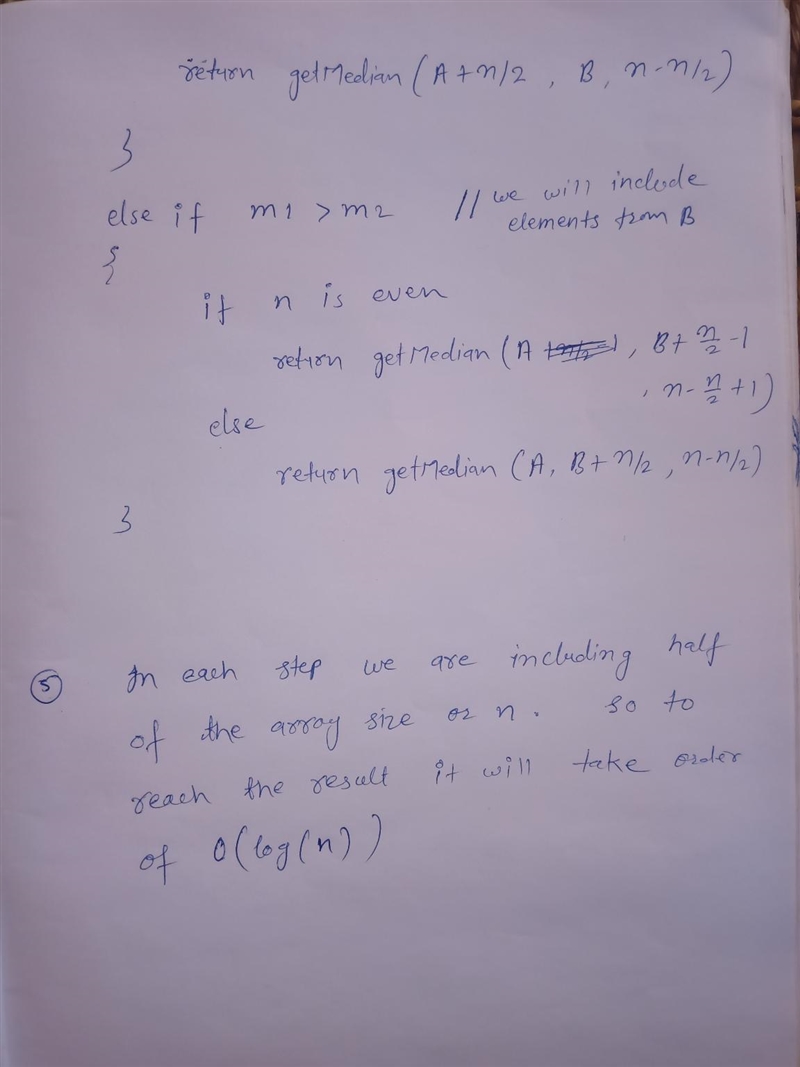 return getMedian (A+n/2 , B, n-n/2)
}
else if m1 > m2 // we will include
elements from B
{
if n is even
return getMedian (A , B+ n/2 -1
, n- n/2 +1)
else
return getMedian (A, B+n/2 , n-n/2)
}
5 In each step we are including half
of the array size or n. so to
reach the result it will take order
of O(log(n))